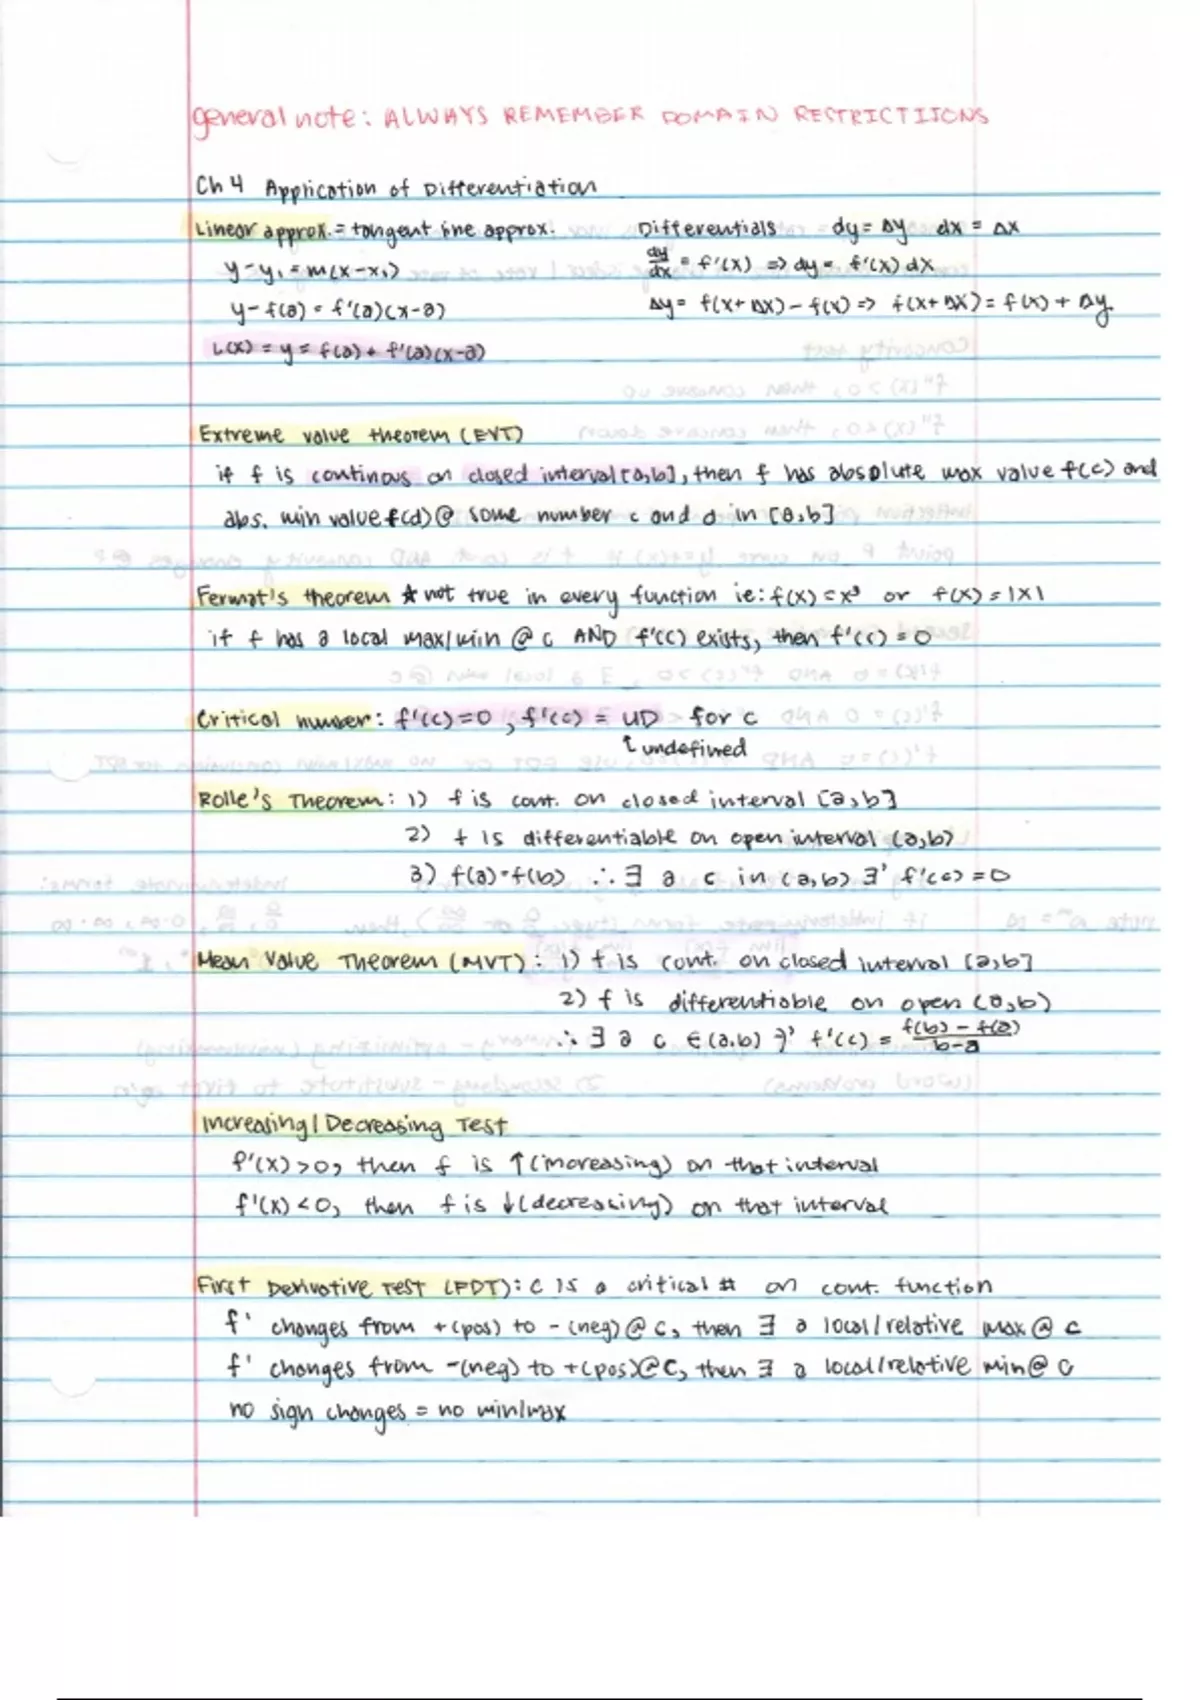 general note: ALWAYS REMEMBER DOMAIN RESTRICTIIONS
Ch 4 Application of Differentiation
Linear approx. = tangent line approx. Differentials dy = Δy dx = Δx
y-y₁ = m(x-x₁) dy/dx = f'(x) => dy = f'(x) dx
y-f(a) = f'(a)(x-a) Δy = f(x+Δx) - f(x) => f(x+Δx) = f(x) + Δy
L(x) = y = f(a) + f'(a)(x-a)
Extreme value theorem (EVT)
if f is continous on closed interval [a,b], then f has absolute max value f(c) and
abs. min value f(d) @ some number c and d in [a,b]
Fermat's theorem ★ not true in every function ie: f(x) = x³ or f(x) = |x|
if f has a local max/min @ c AND f'(c) exists, then f'(c) = 0
Critical number: f'(c)=0, f'(c) = UD for c
↑ undefined
Rolle's Theorem: 1) f is cont. on closed interval [a,b]
2) f is differentiable on open interval (a,b)
3) f(a)=f(b) ∴ ∃ a c in (a,b) ∋ f'(c) = 0
Mean Value Theorem (MVT): 1) f is cont. on closed interval [a,b]
2) f is differentiable on open (a,b)
∴ ∃ a c ∈ (a,b) ∋ f'(c) = f(b) - f(a) / b-a
Increasing/Decreasing Test
f'(x) > 0, then f is ↑ (increasing) on that interval
f'(x) < 0, then f is ↓ (decreasing) on that interval
First Derivative Test (FDT): c is a critical # on cont. function
f' changes from +(pos) to -(neg) @ c, then ∃ a local/relative max @ c
f' changes from -(neg) to +(pos) @ c, then ∃ a local/relative min @ c
no sign changes = no min/max